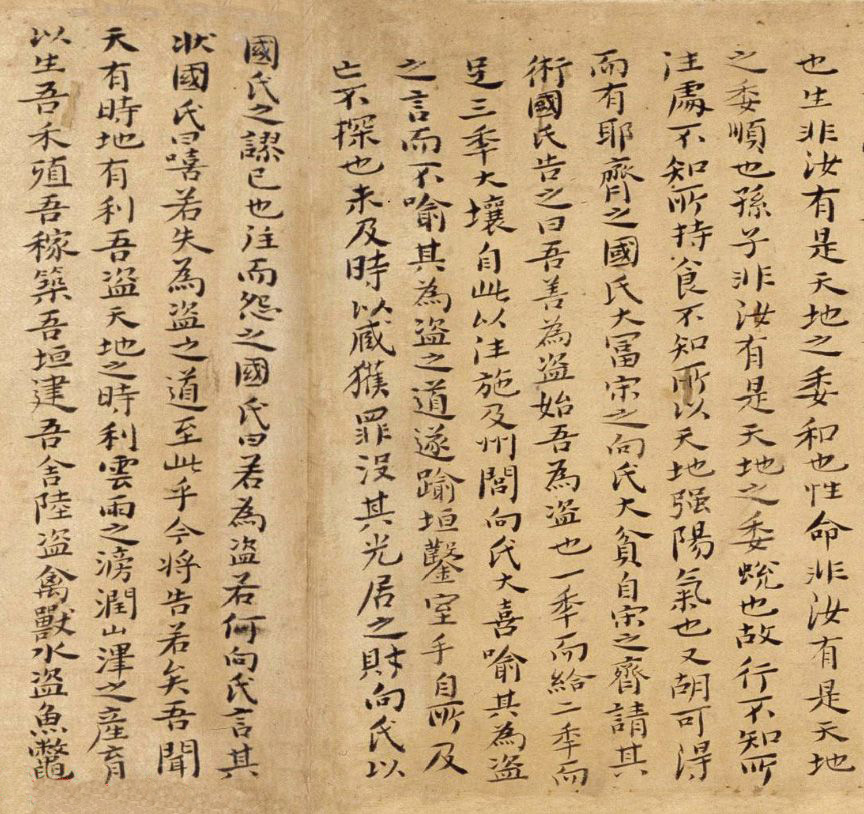 也生非汝有是天地之委和也性命非汝有是天地
之委順也孫子非汝有是天地之委蛻也故行不知所
往處不知所持食不知所以天地强陽氣也又胡可得
而有耶齊之國氏大冨宋之向氏大貧自宋之齊請其
術國氏告之曰吾善為盗始吾為盗也一秊而給二秊而
足三秊大壤自此以往施及州閭向氏大喜喻其為盗
之言而不喻其為盗之道遂踰垣鑿室手自所及
亡不探也未及時以臧獲罪没其先居之財向氏以
國氏之謬已也往而怨之國氏曰若為盗若何向氏言其
狀國氏曰嘻若失為盗之道至此乎今將告若矣吾聞
天有時地有利吾盗天地之時利雲雨之滂潤山澤之産育
以生吾禾殖吾稼築吾垣建吾舎陸盗禽獸水盗魚鼈